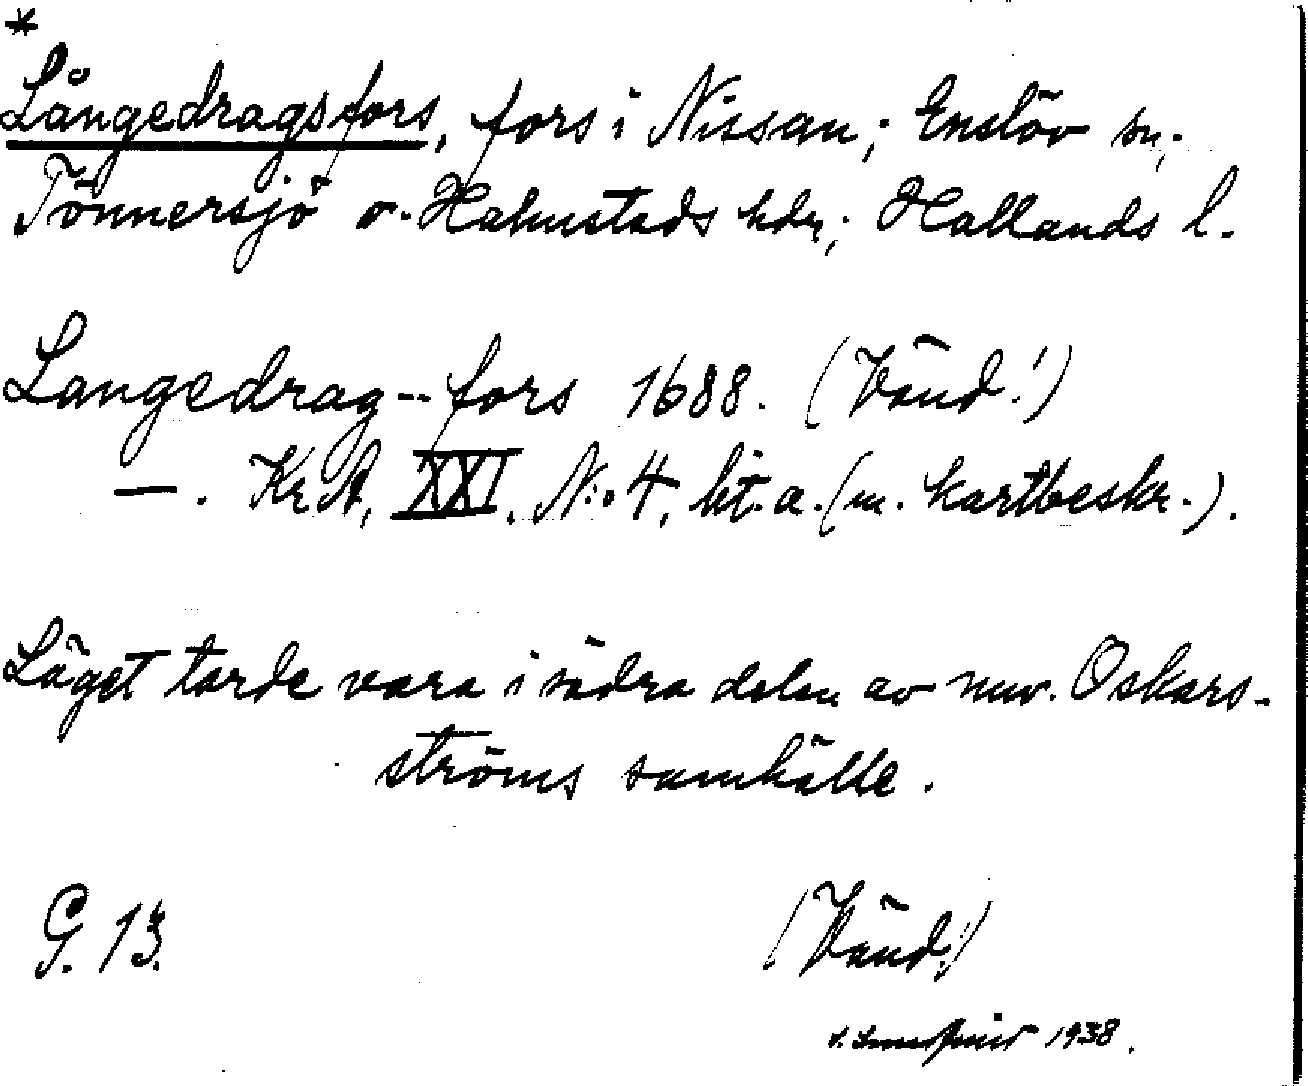 *
Långedragsfors, fors i Nissan; Enslöv sn;
Tönnersjö o. Halmstads hdr; Hallands l.
Langedrag--fors 1688. (Vänd!)
—. Kr A, XXI, N:o 4, lit. a. (m. kartbeskr.).
Läget torde vara i södra delen av nuv. Oskars-
ströms samhälle.
G. 13.
(Vänd!)
1938.